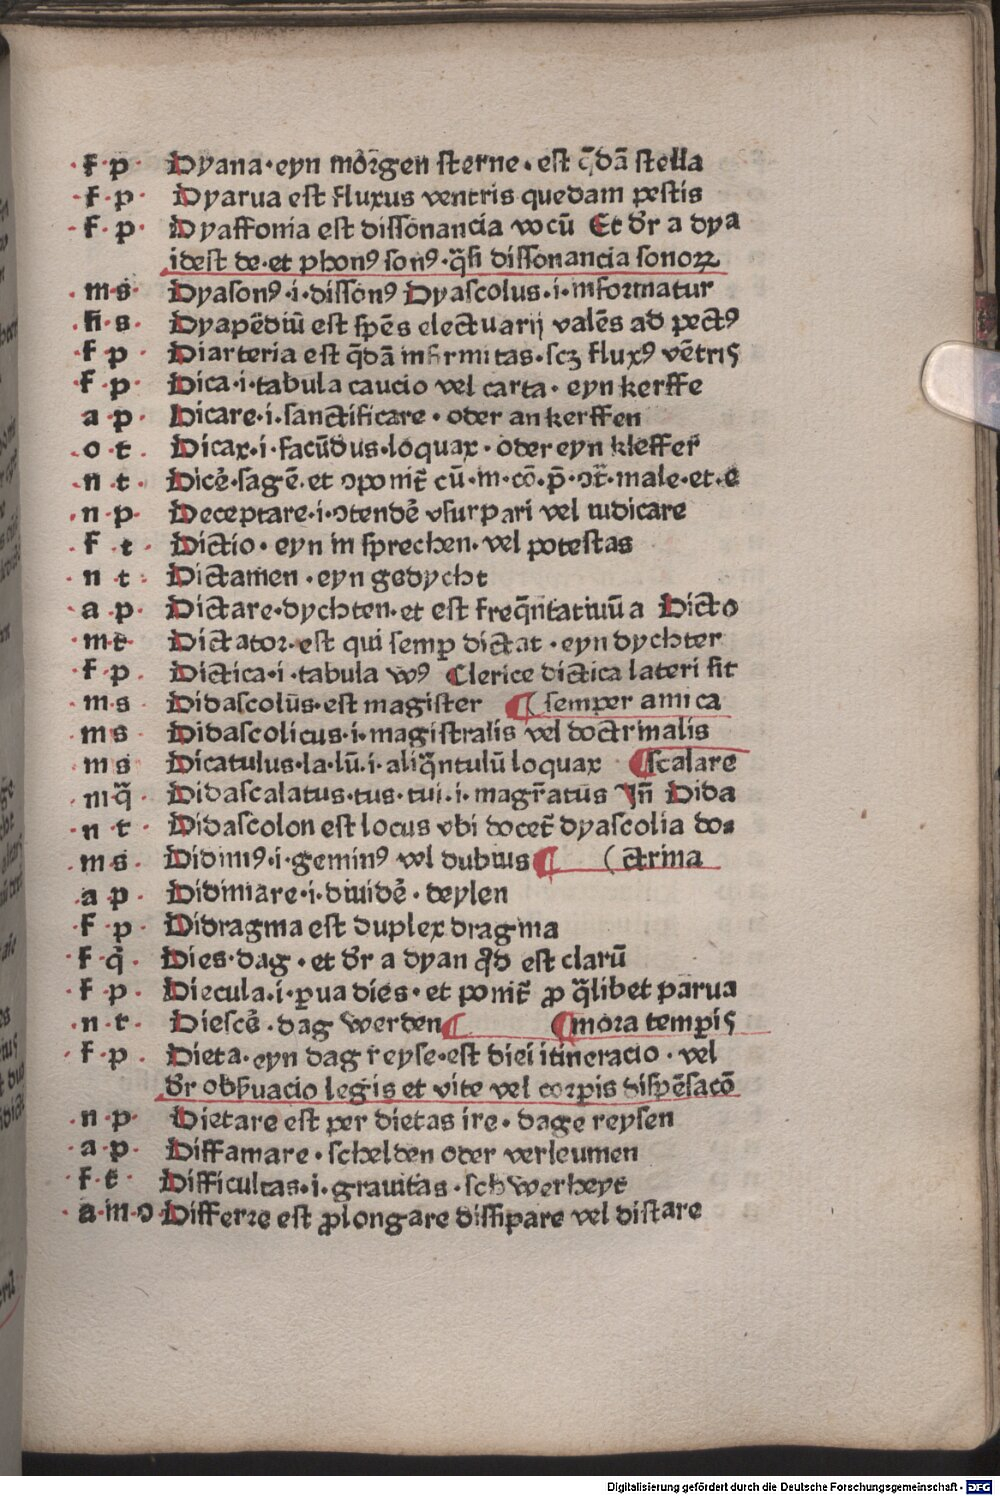 f p Dyana·eyn mörgen sterne·est q̄dā stella
f·p· Dyarua est fluxus ventris quedam pestis
f·p· Dyaffonia est dissonancia vocū Et dr̄ a dya
idest de·et phonꝰ sonꝰ·q̄si dissonancia sonoꝝ
m·s· Dyasonꝰ·i·dissonꝰ Dyascolus·i·informatur
fi·s· Dyapēdiū est spēs electuarij valēs ad pectꝰ
f p Diarteria est q̄dā infirmitas·scꝫ fluxꝰ vētris
f p· Dica·i·tabula caucio vel carta·eyn kerffe
a p· Dicare·i·sanctificare·oder an kerffen
o t· Dicax·i·facūdus·loquax·oder eyn kleffer
n t· Dicē·sagē·et ↄponit̄ cū·in·cō·p̄·ↄt̄·male·et·e
n p· Deceptare·i·ↄtendē vsurpari vel iudicare
f t· Dictio·eyn in sprechen·vel potestas
n t· Dictamen·eyn gedycht
a p· Dictare·dychten·et est freq̄ntatiuū a Dicto
m·t· Dictator·est qui semꝑ dictat·eyn dychter
f p· Dictica·i·tabula vꝰ Clerice dictica lateri sit
m·s Didascolus·est magister (semper amica
m s Didascolicus·i·magistralis vel doctrinalis
m s Dicatulus·la·lū·i·aliq̄ntulū loquax scalare
m q̄ Didascalatus·tus·tui·i·magr̄atus In̄ Dida
n t· Didascolon est locus vbi docet̄ dyascolia do⸗
m s· Didimꝰ·i·geminꝰ vl dubius (ctrina
a p· Didimare·i·diuidē·deylen
f p· Didragma est duplex dragma
f q̄· Dies·dag·et dr̄ a dyan qd̄ est clarū
f p· Diecula·i·ꝑua dies·et ponit̄ ꝓ q̄libet parua
n·t· Diescē·dag werden mora tempis
f p· Dieta·eyn dag reyse·est diei itineracio·vel
dr̄ obẜuacio legis et vite vel corꝑis dispēsacō
n p· Dietare est per dietas ire·dage reysen
a p· Diffamare·schelden oder verleumen
f·t· Difficultas·i·grauitas·schwerheyt
a·m·o Differre est ꝓlongare dissipare vel distare
Digitalisierung gefördert durch die Deutsche Forschungsgemeinschaft · DFG